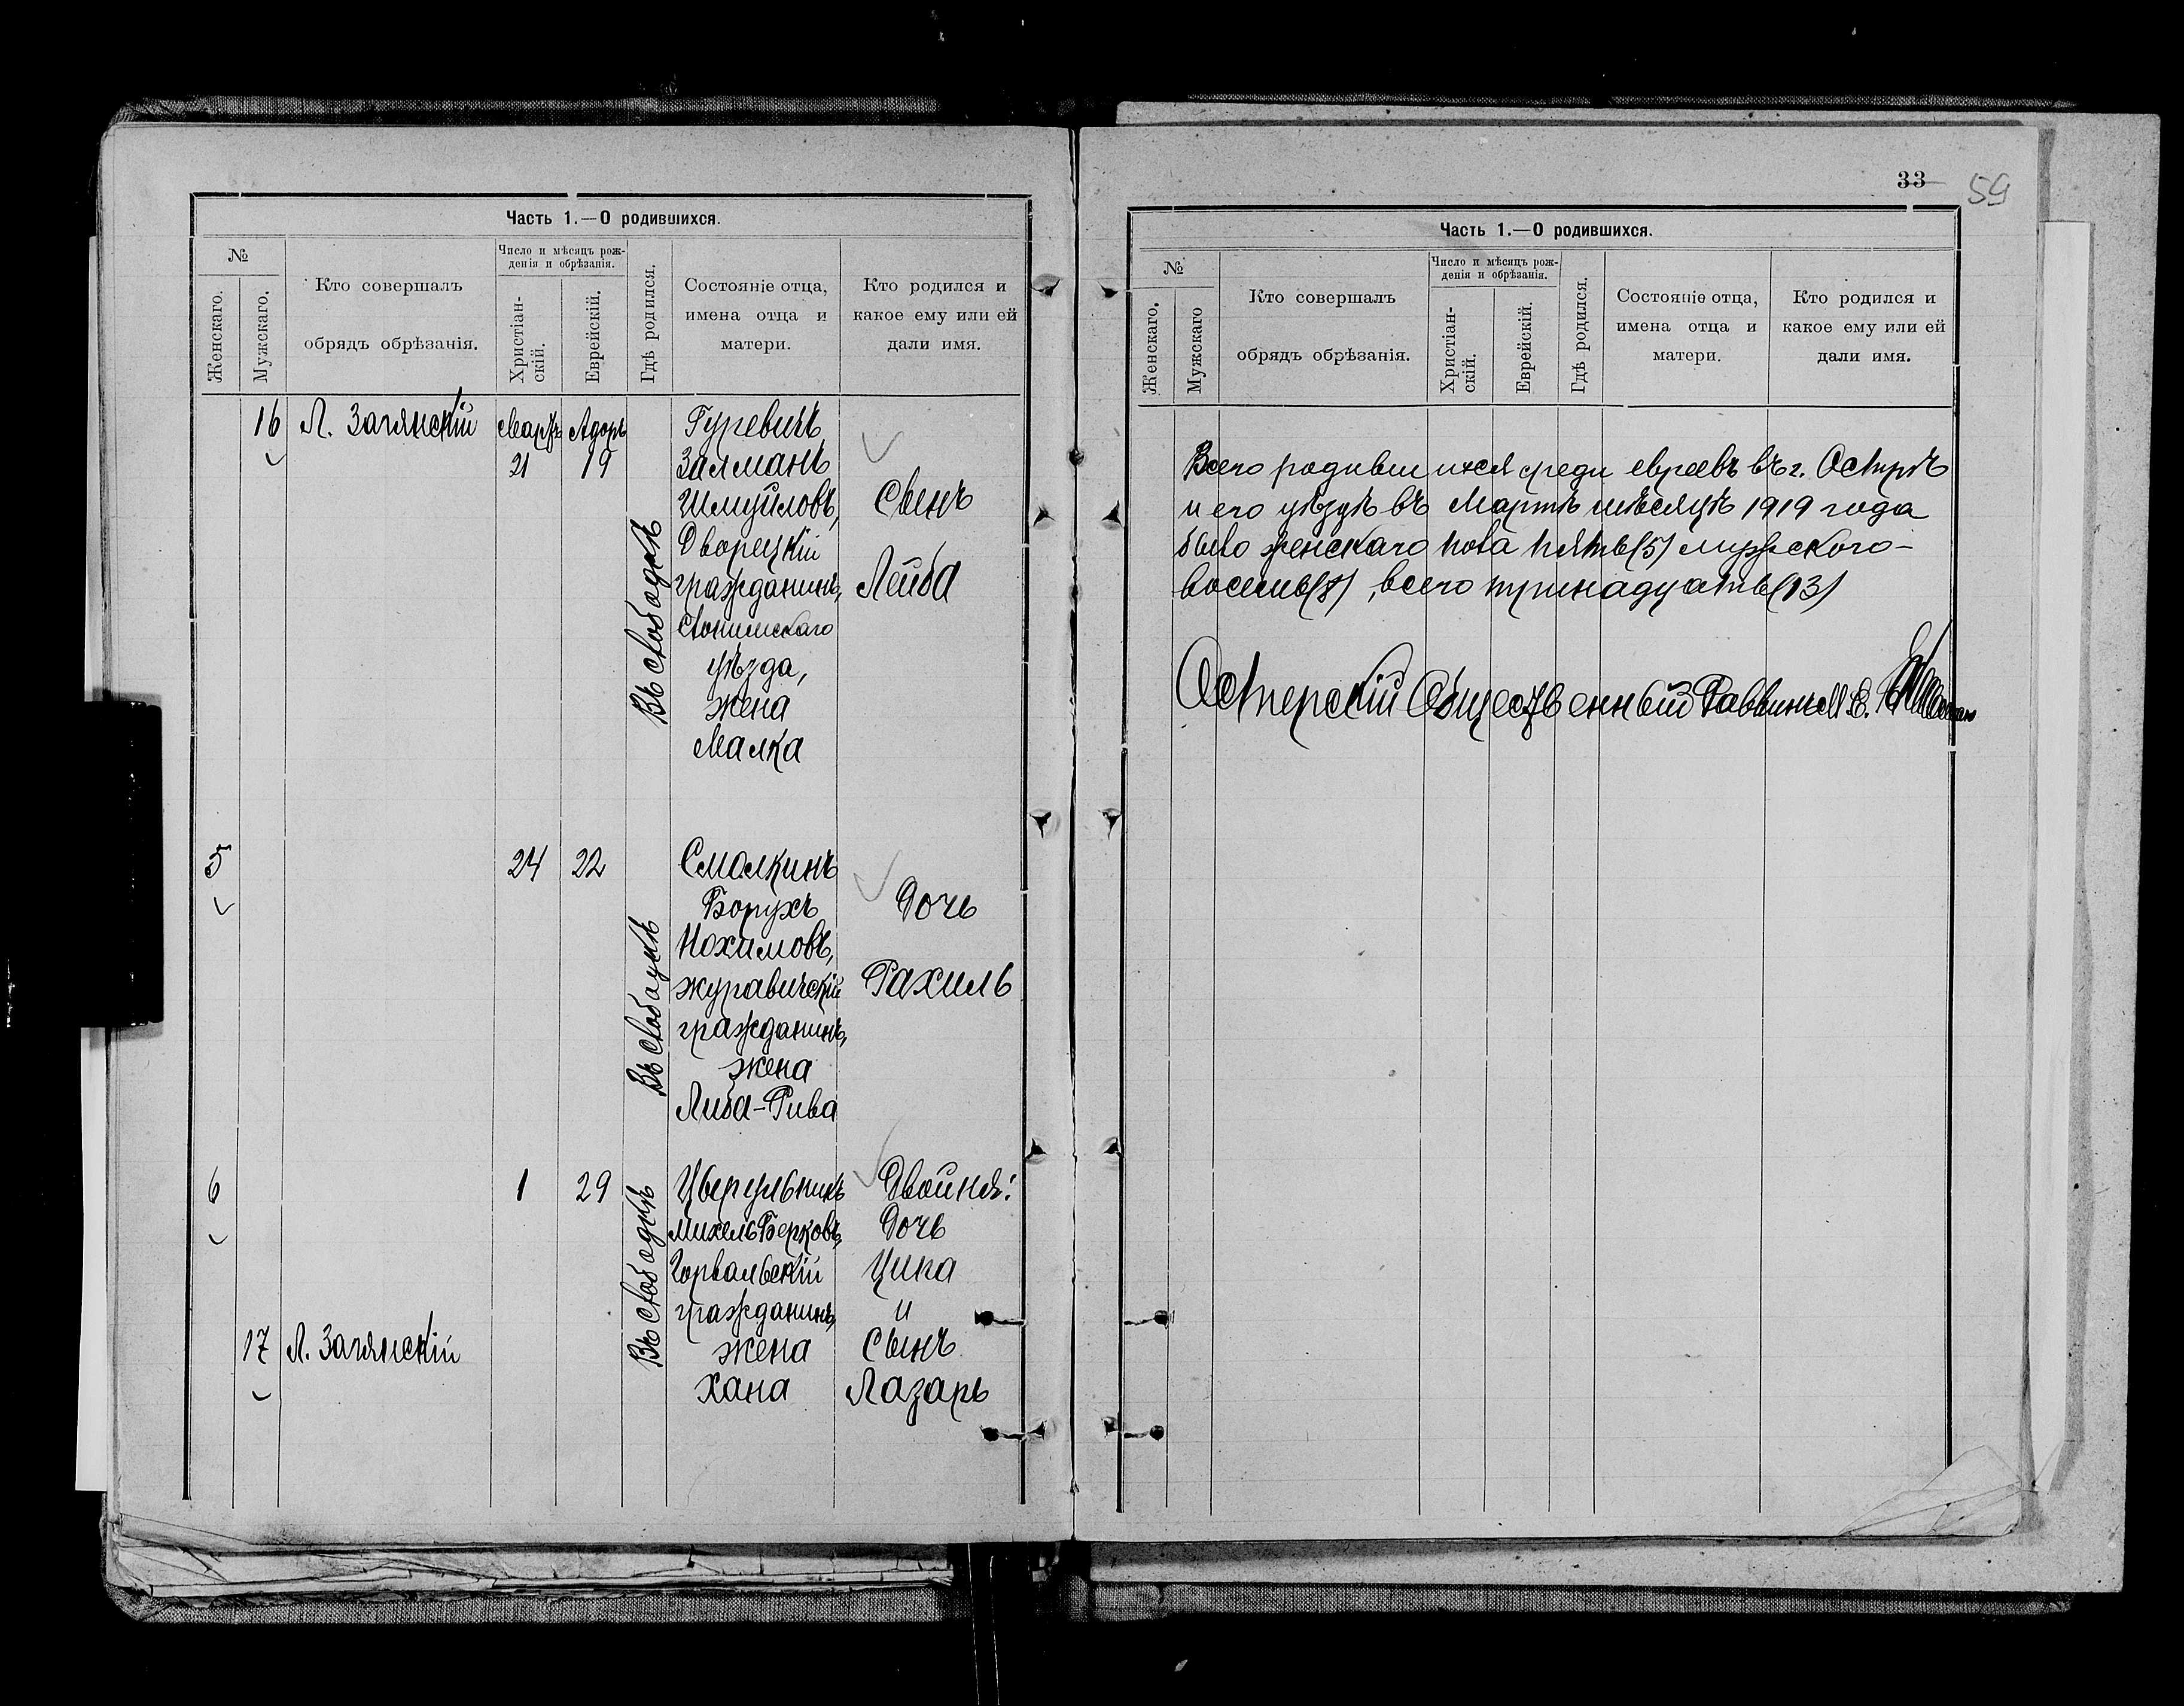 Часть 1.—О родившихся.
№
Женскаго.
Мужскаго.
Кто совершалъ
обрядъ обрѣзанія.
Число и мѣсяцъ рож-
денія и обрѣзанія.
Христіан-
скій.
Еврейскій.
Гдѣ родился.
Состояніе отца,
имена отца и
матери.
Кто родился и
какое ему или ей
дали имя.
16
Л. Загянскій
Мартъ
21
Адоръ
19
Въ слободкѣ
Гуревичъ
Залманъ
Шмуйловъ,
Дворецкій
гражданинъ,
Слонимскаго
уѣзда,
жена
Малка
Сынъ
Лейба
5
24
22
Въ слободкѣ
Смолкинъ
Борухъ
Нохимовъ,
журавичскій
гражданинъ,
жена
Либа-Рива
Дочь
Рахиль
6
1
29
Въ слободкѣ
Цверульникъ
Михель Берковъ,
Горвальскій
гражданинъ,
жена
Хана
Двойня:
Дочь
Ципа
и
Сынъ
Лазарь
17
Л. Загянскій
33
59
Часть 1.—О родившихся.
№
Женскаго.
Мужскаго
Кто совершалъ
обрядъ обрѣзанія.
Число и мѣсяцъ рож-
денія и обрѣзанія.
Христіан-
скій.
Еврейскій.
Гдѣ родился.
Состояніе отца,
имена отца и
матери.
Кто родился и
какое ему или ей
дали имя.
Всего родившихся среди евреевъ въ г. Острѣ
и его уѣздѣ въ Мартѣ мѣсяцѣ 1919 года
было женскаго пола пять (5) мужского-
восемь (8), всего тринадцать (13)
Остерскій Общественный Раввинъ М. Е.